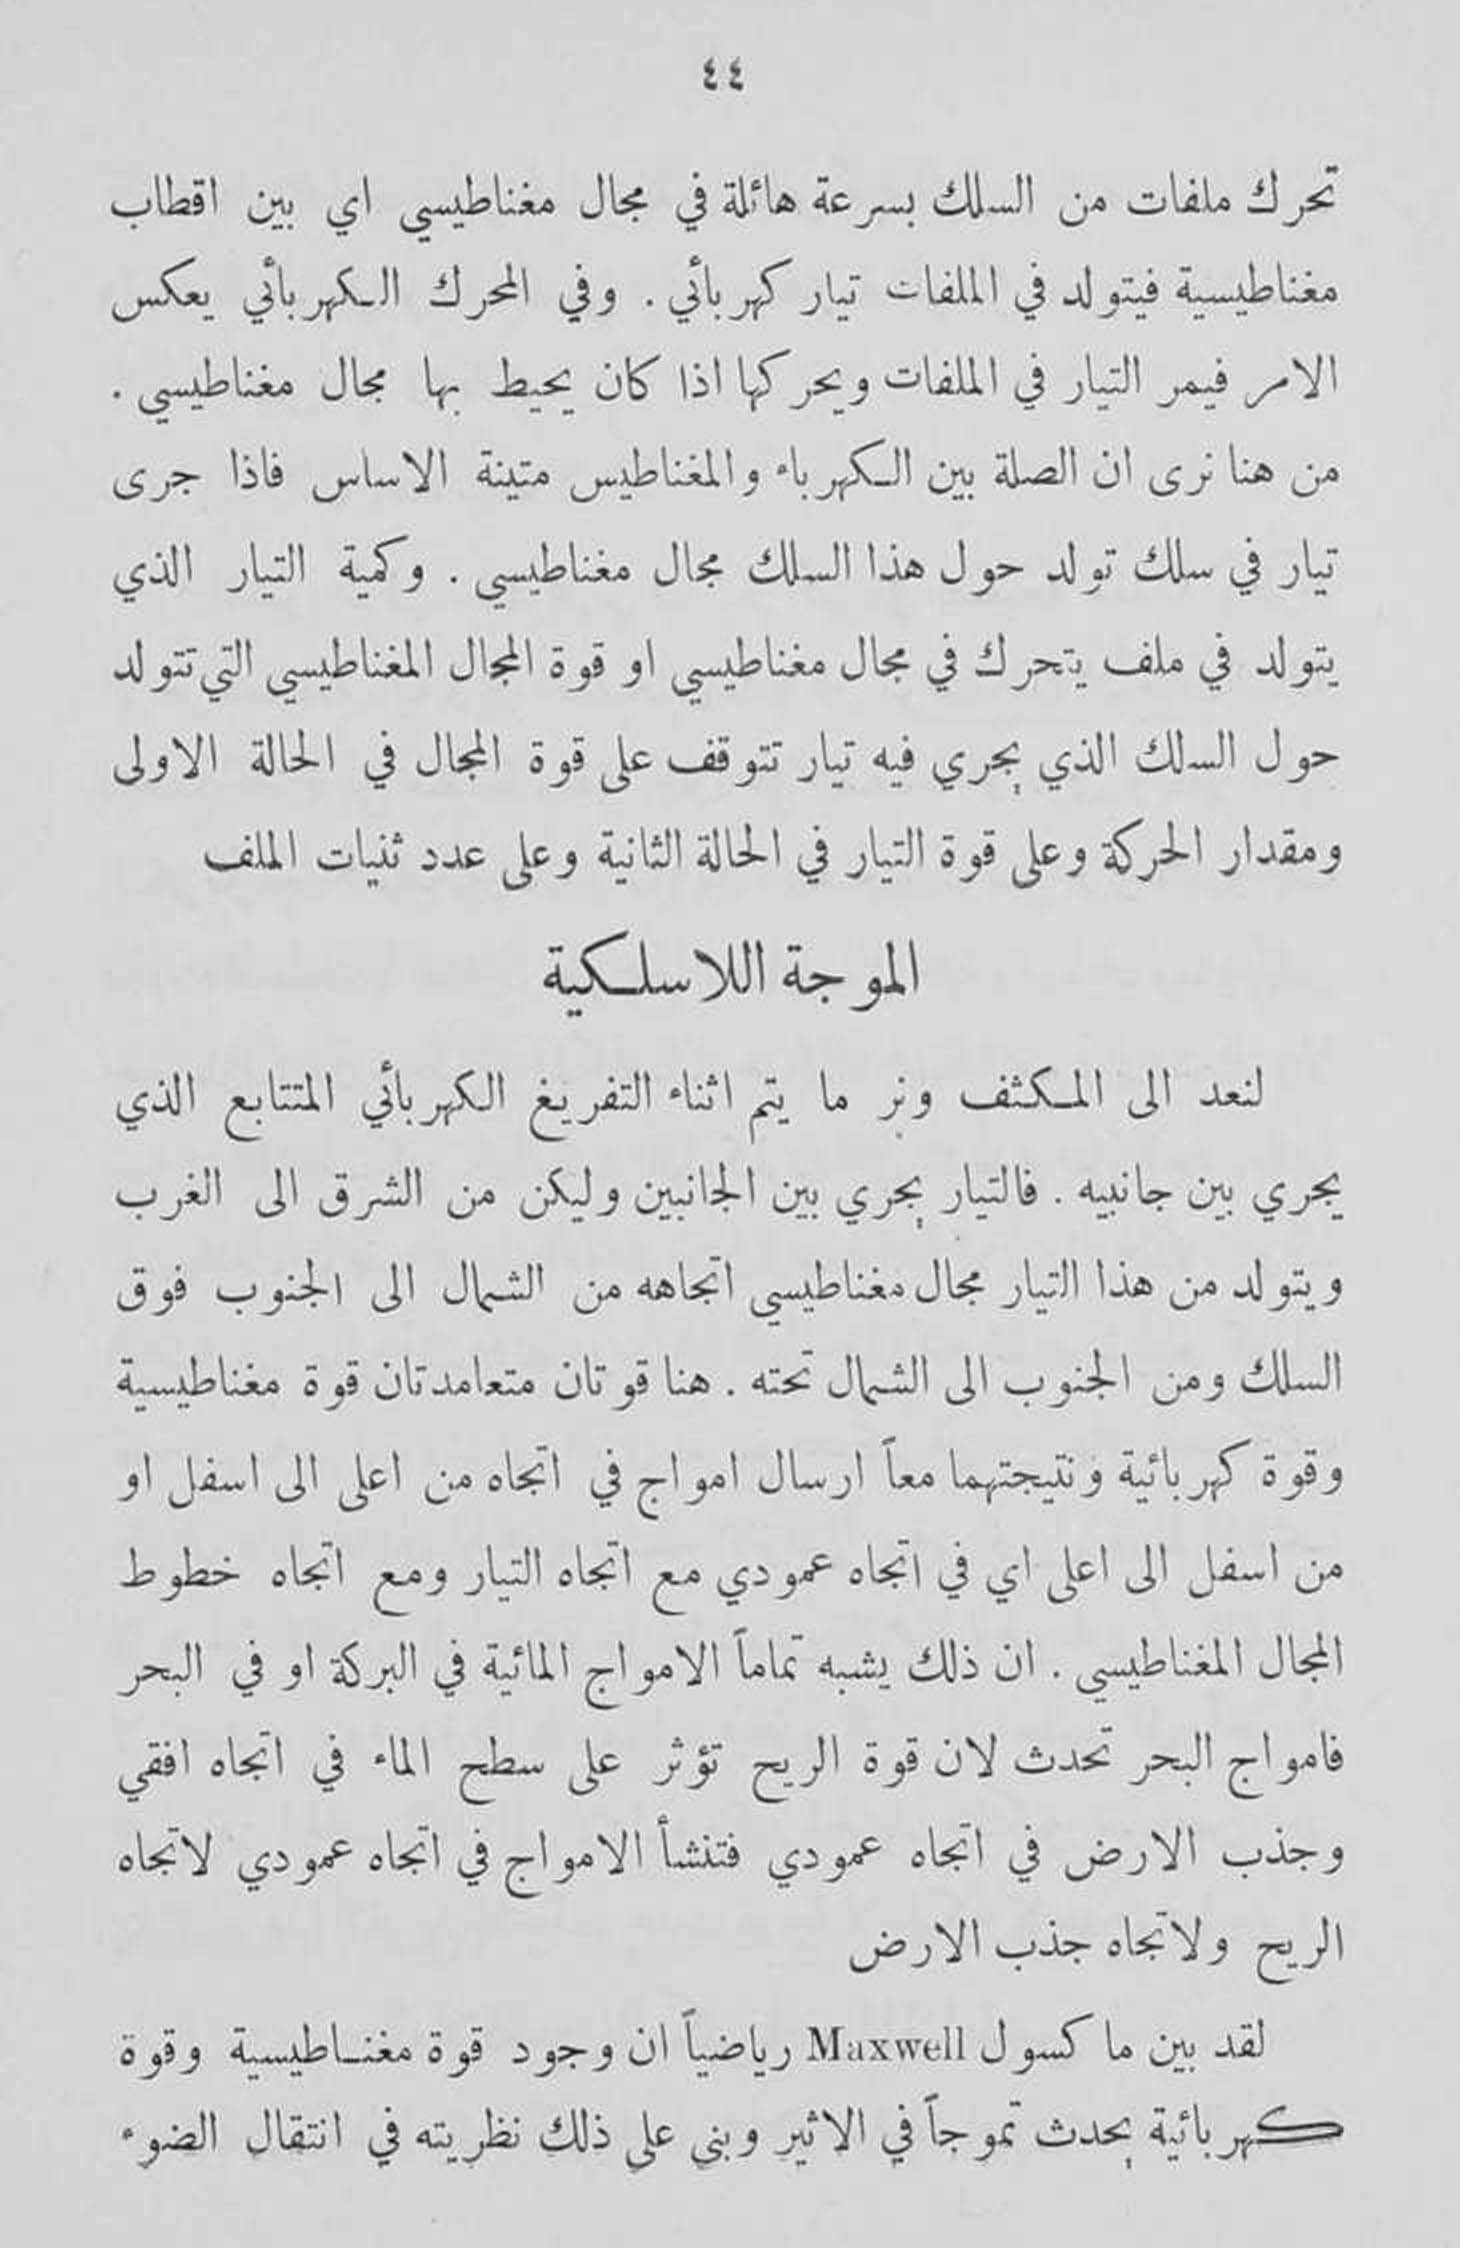 ٤٤
تحرك ملفات من السلك بسرعة هائلة في مجال مغناطيسي اي بين اقطاب
مغناطيسية فيتولد في الملفات تيار كهربائي . وفي المحرك الكهربائي يعكس
الامر فيمر التيار في الملفات ويحركها اذا كان يحيط بها مجال مغناطيسي .
من هنا نرى ان الصلة بين الكهرباء والمغناطيس متينة الاساس فاذا جرى
تيار في سلك تولد حول هذا السلك مجال مغناطيسي . وكمية التيار الذي
يتولد في ملف يتحرك في مجال مغناطيسي او قوة المجال المغناطيسي التي تتولد
حول السلك الذي يجري فيه تيار تتوقف على قوة المجال في الحالة الاولى
ومقدار الحركة وعلى قوة التيار في الحالة الثانية وعلى عدد ثنيات الملف
الموجة اللاسلكية
لنعد الى المكثف ونر ما يتم اثناء التفريغ الكهربائي المتتابع الذي
يجري بين جانبيه . فالتيار يجري بين الجانبين وليكن من الشرق الى الغرب
ويتولد من هذا التيار مجال مغناطيسي اتجاهه من الشمال الى الجنوب فوق
السلك ومن الجنوب الى الشمال تحته . هنا قوتان متعامدتان قوة مغناطيسية
وقوة كهربائية ونتيجتهما معاً ارسال امواج في اتجاه من اعلى الى اسفل او
من اسفل الى اعلى اي في اتجاه عمودي مع اتجاه التيار ومع اتجاه خطوط
المجال المغناطيسي . ان ذلك يشبه تماماً الامواج المائية في البركة او في البحر
فامواج البحر تحدث لان قوة الريح تؤثر على سطح الماء في اتجاه افقي
وجذب الارض في اتجاه عمودي فتنشأ الامواج في اتجاه عمودي لاتجاه
الريح ولاتجاه جذب الارض
لقد بين ماكسول Maxwell رياضياً ان وجود قوة مغناطيسية وقوة
كهربائية يحدث تموجاً في الاثير وبنى على ذلك نظريته في انتقال الضوء